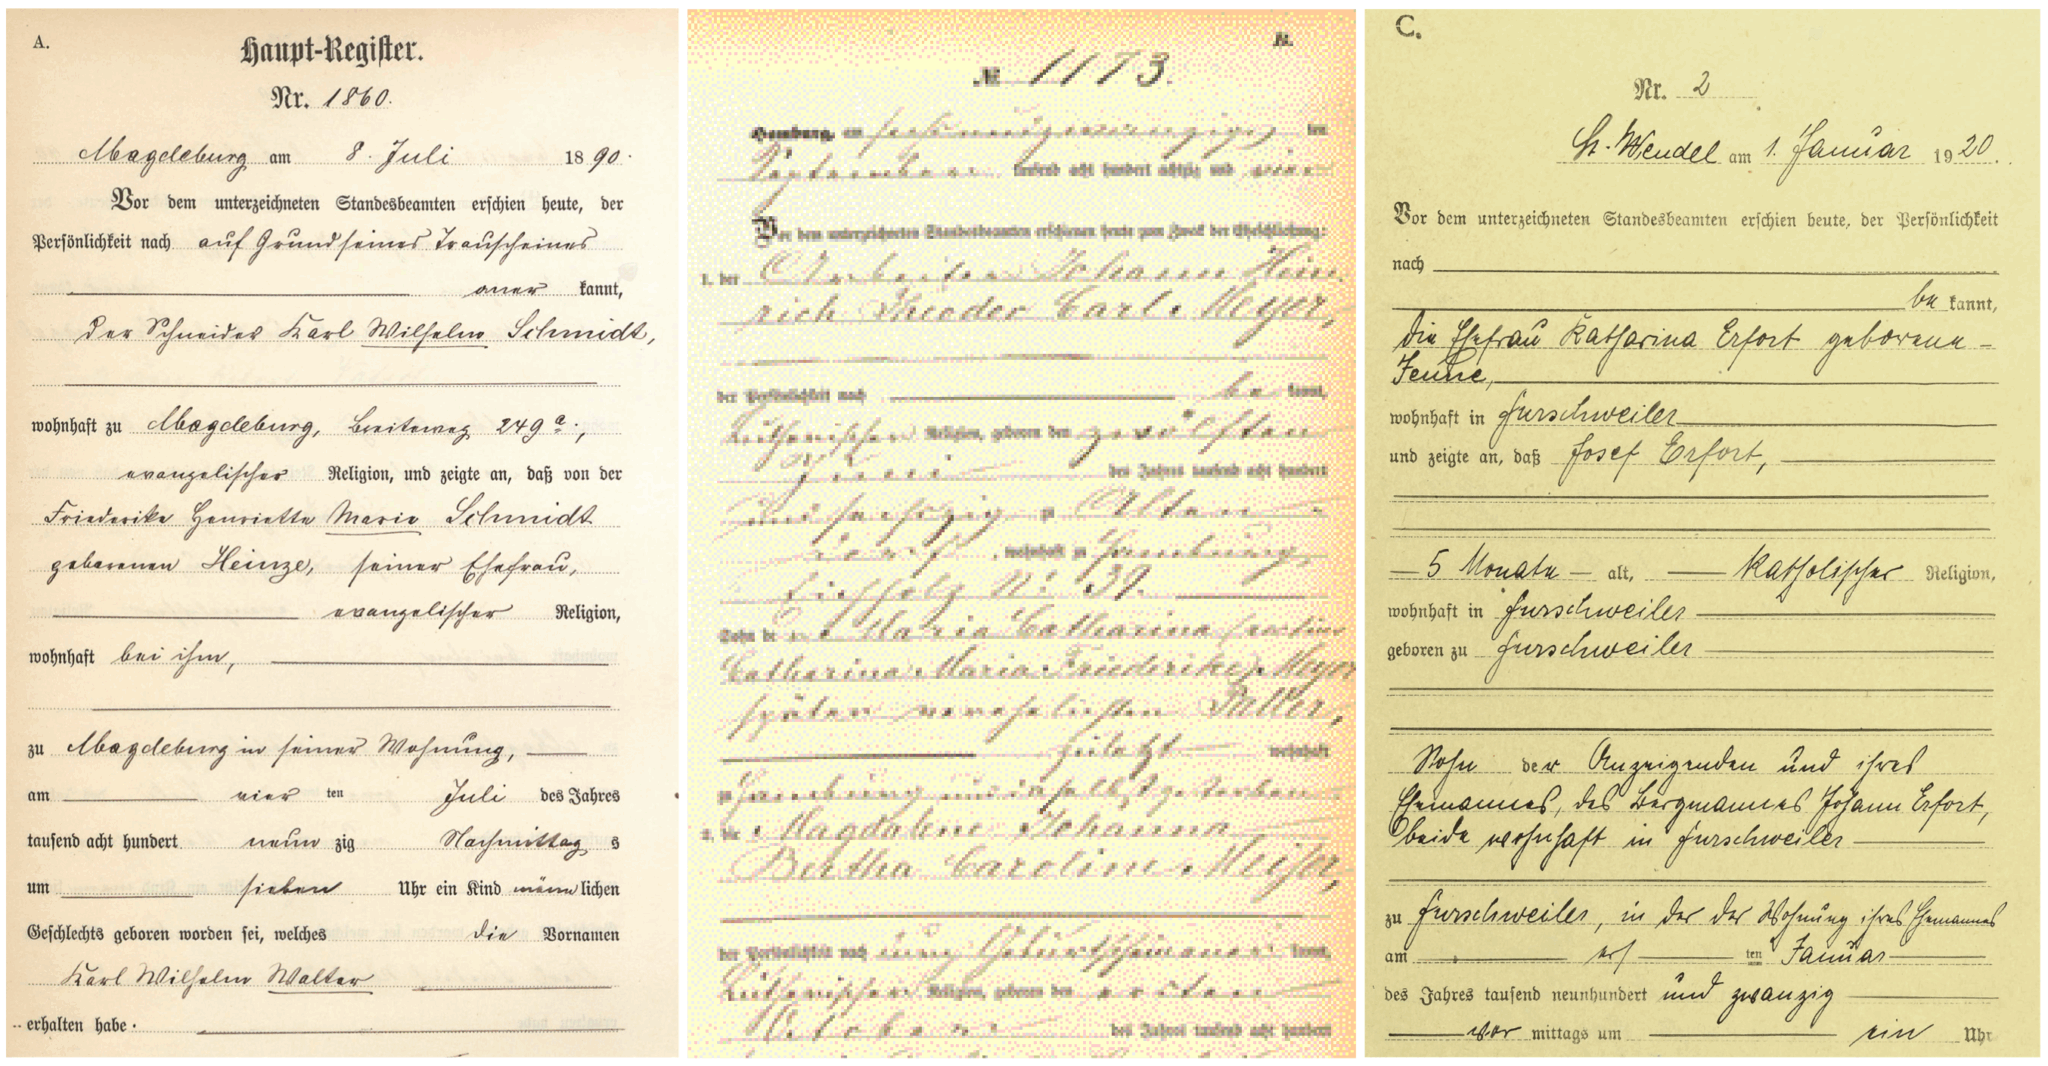 A.
Haupt-Register.
Nr. 1860.
Magdeburg am 8. Juli 1890.
Vor dem unterzeichneten Standesbeamten erschien heute, der
Persönlichkeit nach auf Grund seines Trauscheines
aner kannt,
der Schneider Karl Wilhelm Schmidt,
wohnhaft zu Magdeburg, Breiteweg 249a.,
evangelischer Religion, und zeigte an, daß von der
Friederike Henriette Marie Schmidt
geborenen Heinze, seiner Ehefrau,
evangelischer Religion,
wohnhaft bei ihm,
zu Magdeburg in seiner Wohnung,
am vier ten Juli des Jahres
tausend acht hundert neun zig Nachmittag s
um sieben Uhr ein Kind männlichen
Geschlechts geboren worden sei, welches die Vornamen
Karl Wilhelm Walter
erhalten habe.
B.
№ 1173.
Hamburg, am sechsundzwanzigsten
September tausend acht hundert achtzig und vier
Vor dem unterzeichneten Standesbeamten erschienen heute zum Zweck der Eheschließung:
1. der Arbeiter Johann Hein
rich Theodor Carl Meyer,
der Persönlichkeit nach be kannt,
lutherischer Religion, geboren den zwölften
Juni des Jahres tausend acht hundert
und sechszig Alten
dorf, wohnhaft zu Hamburg,
Eichholz No. 39.
Sohn der Maria Catharina
Catharina Maria Friederike Meyer
später verehelichten
zuletzt wohnhaft
Hamburg und daselbst gestorben
2. die Magdalene Johanna
Bertha Caroline Meyer,
der Persönlichkeit nach Geburtschein aner kannt,
lutherischer Religion, geboren den ersten
October des Jahres tausend acht hundert
C.
Nr. 2
St. Wendel am 1. Januar 1920.
Vor dem unterzeichneten Standesbeamten erschien heute, der Persönlichkeit
nach
be kannt,
die Ehefrau Katharina Erfort geborene
Jenne,
wohnhaft in Furschweiler
und zeigte an, daß Josef Erfort,
5 Monate alt, katholischer Religion,
wohnhaft in Furschweiler
geboren zu Furschweiler
Sohn der Anzeigenden und ihres
Ehemannes, des Bergmannes Johann Erfort,
beide wohnhaft in Furschweiler
zu Furschweiler, in der der Wohnung ihres Ehemannes
am ers ten Januar
des Jahres tausend neunhundert und zwanzig
vor mittags um ein Uhr